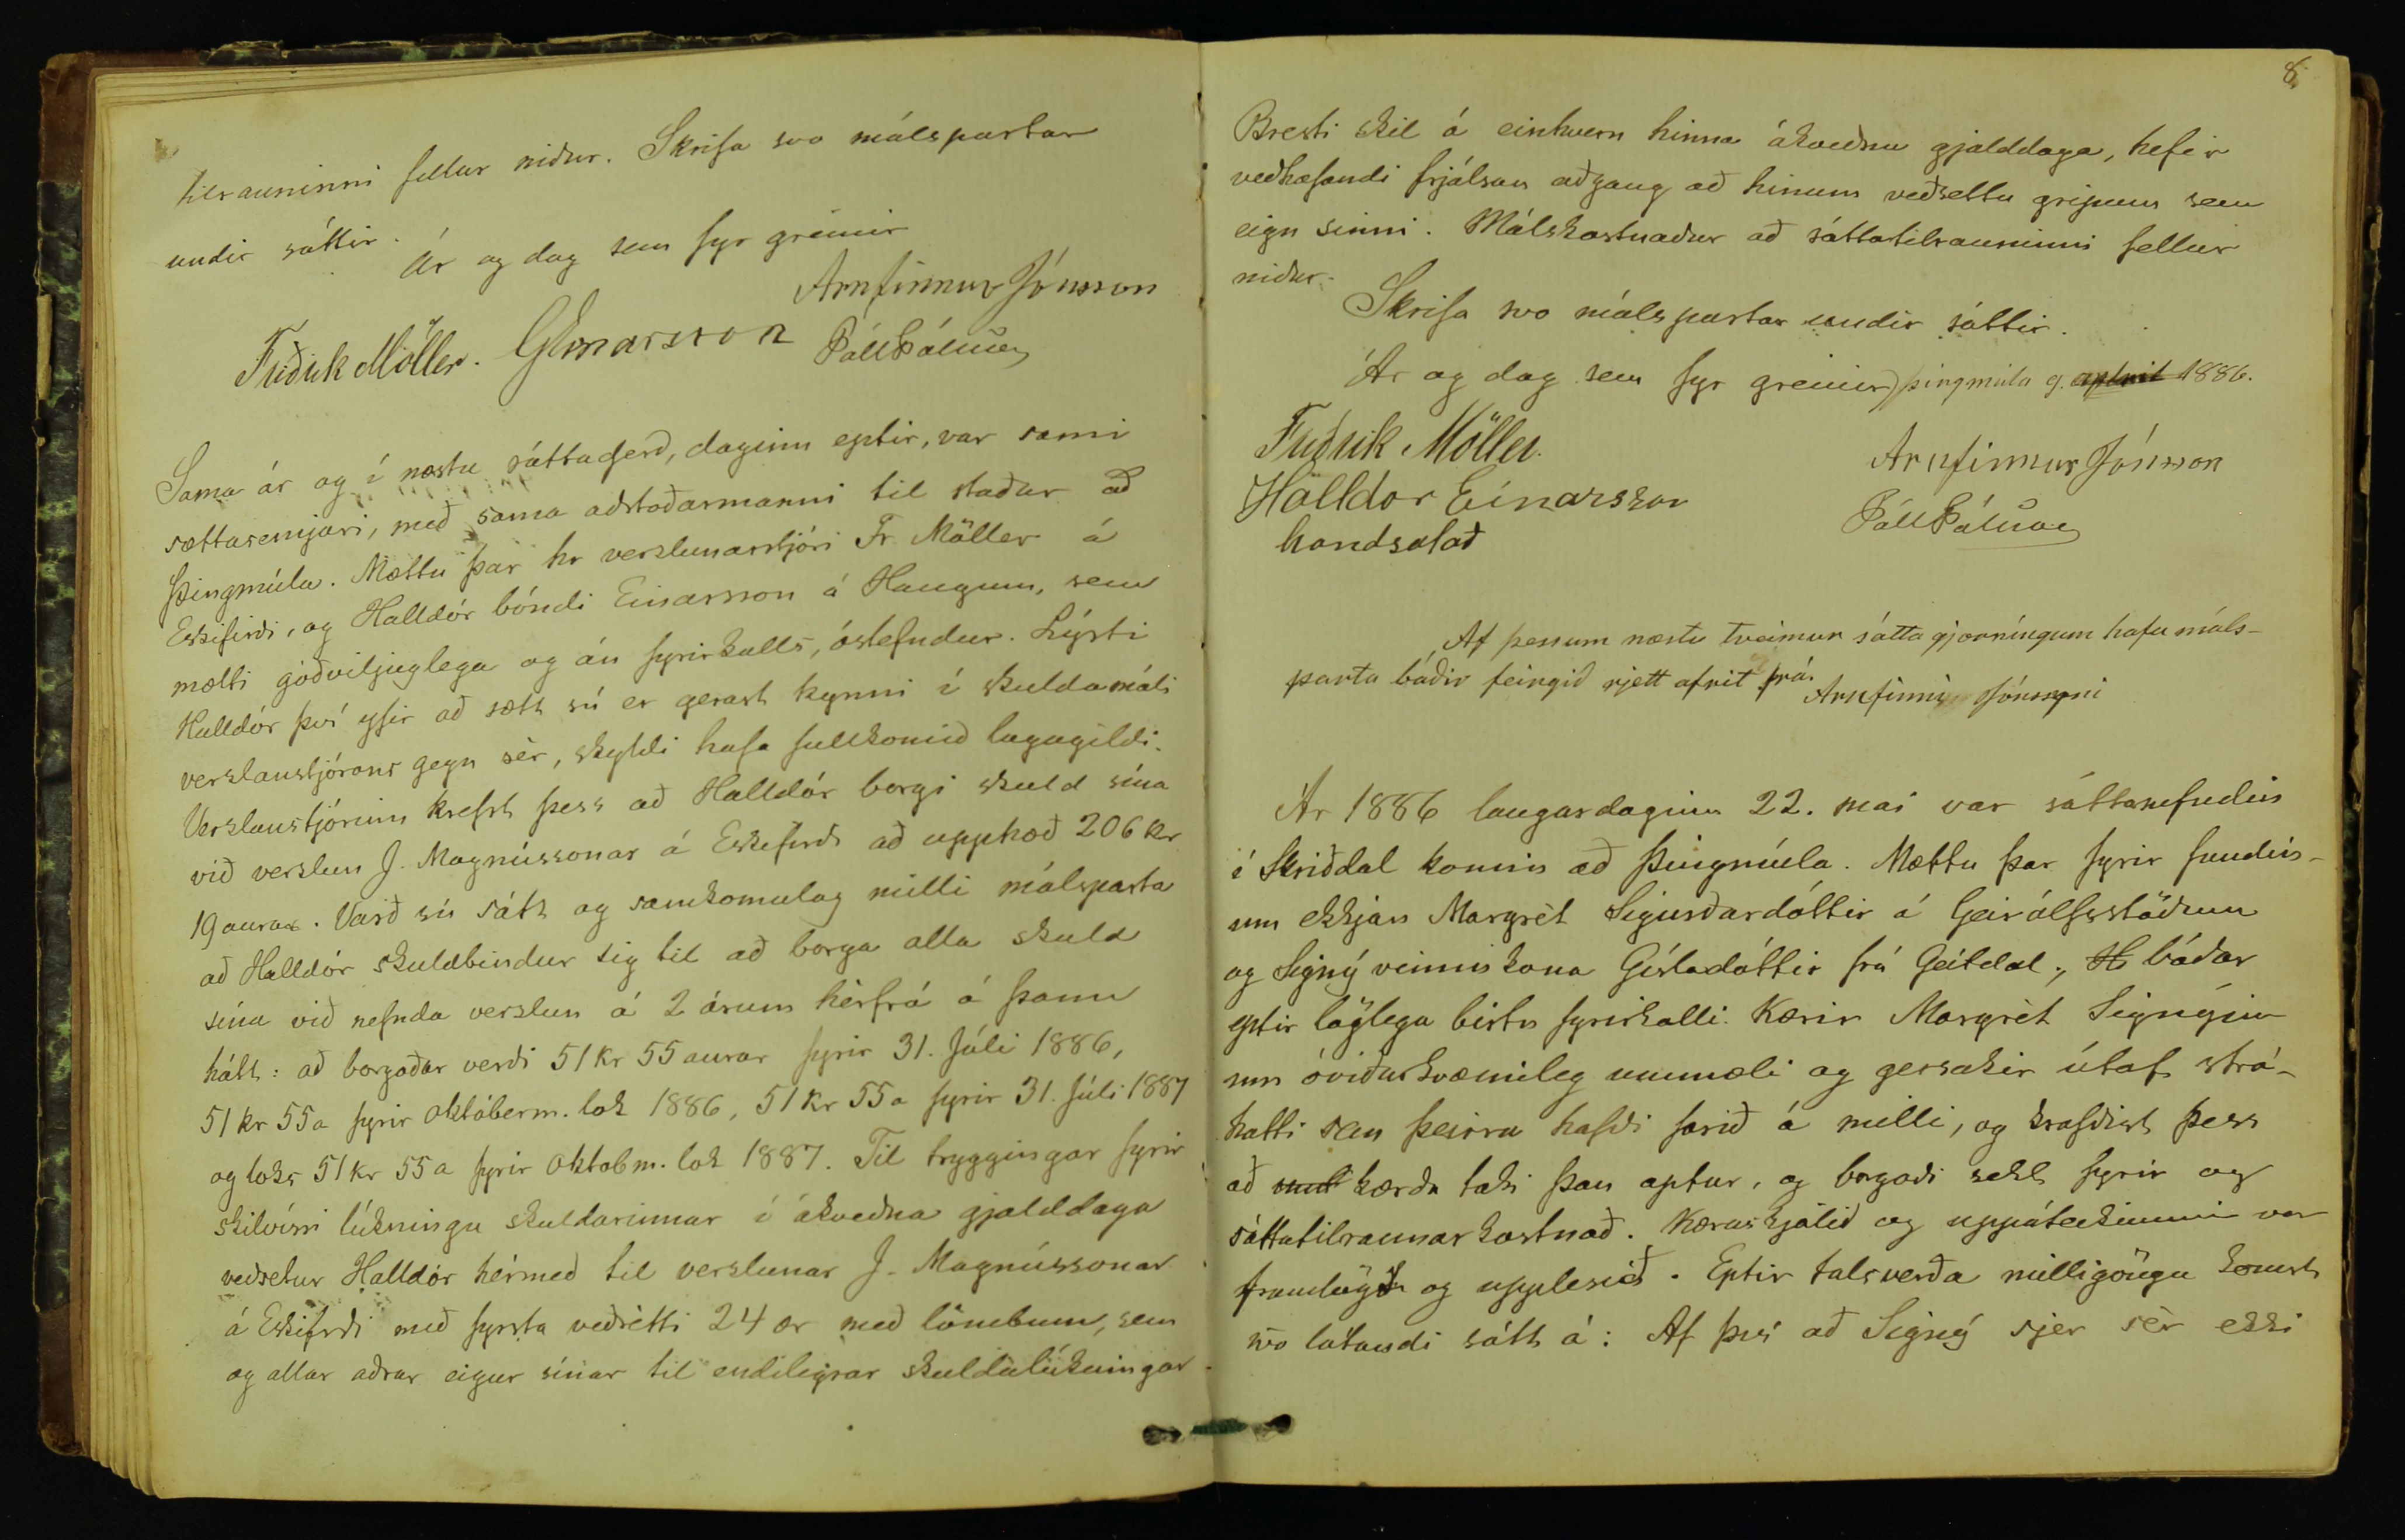 tilrauninni fellur niður. Skrifa svo málspartar
undir sáttir.
Ár og dag sem fyr greinir
Arnfinnur Jónsson
Friðrik Möller. GEinarsson PállPálsson
Sama ár og í næstu sáttagerð, daginn eptir, var sami
sættasemjari, með sama aðstoðarmanni til staður að
Þingmúla. Mættu þar hr verslunarstjóri Fr Möller á
Eskifirði, og Halldór bóndi Einarsson á Haugum, sem
mætti góðviljuglega og án fyrirkalls, óstefndur. Lýsti
Halldór því yfir að sætt sú er gerast kynni í skuldamáli
verslanstjórans gegn sèr, skyldi hafa fullkomið lagagildi.
Verslanstjórinn krefst þess að Halldór borgi skuld sína
við verslun J. Magnússonar á Eskifirði að upphæð 206 kr
19 aurar. Varð sú sátt og samkomulag milli málsparta
að Halldór skuldbindur sig til að borga alla skuld
sína við nefnda verslun á 2 árum hèrfrá á þann
hátt: að borgaðar verði 51 kr 55 aurar fyrir 31. Júli 1886,
51 kr 55 a fyrir októberm. lok 1886, 51 kr 55 a fyrir 31. Júli 1887
og loks 51 kr 55 a fyrir oktobm. lok 1887. Til tryggingar fyrir
skilvísri lúkningu skuldarinnar í ákveðna gjalddaga
veðsetur Halldór hèrmeð til verslunar J. Magnússonar
á Eskifirði með fyrsta veðrètti 24 ær með lömbum, sem
og allar aðrar eigur sínar til endilegrar skuldalúkningar.
8
Bresti skil á einhvern hinna ákveðnu gjalddaga, hefir
veðhafandi frjálsan aðgang að hinum veðsettu gripum sem
eign sinni. Málskostnaður að sáttatilrauninni fellur
niður.
Skrifa svo málspartar undir sáttir.
Ár og dag sem fyr greinir) þingmúla 9. aptril 1886.
Friðrik Möller. Arnfinnur Jónsson
Halldor Einarsson PállPálsson
handsalað
Af þessum næstu tveimur sátta gjörníngum hafa máls-
parta báðir feingið rjett afrit frá.
Arnfinni Jónssyni
Ár 1886 laugardaginn 22. mai var sáttanefndin
í Skriðdal komin að Þingmúla. Mættu þar fyrir fundin-
um ekkjan Margrèt Sigurðardóttir á Geirólfsstöðum
og Signý vinnukona Gísladóttir frá Geitdal, H báðar
eptir löglega birtu fyrirkalli. Kærir Margrèt Signýju
um óviðurkvæmileg ummæli og gersakir útaf strá-
hatti sem þeirra hafði farið á milli, og krafðist þess
að kærða taki þau aptur, og borgaði sekt fyrir og
sáttatilraunarkostnað. Kæruskjalið og uppáteikninni var
framlögð og upplesið. Eptir talsverða milligöngu komst
svo látandi sátt á: Af því að Signý sjer sèr ekki